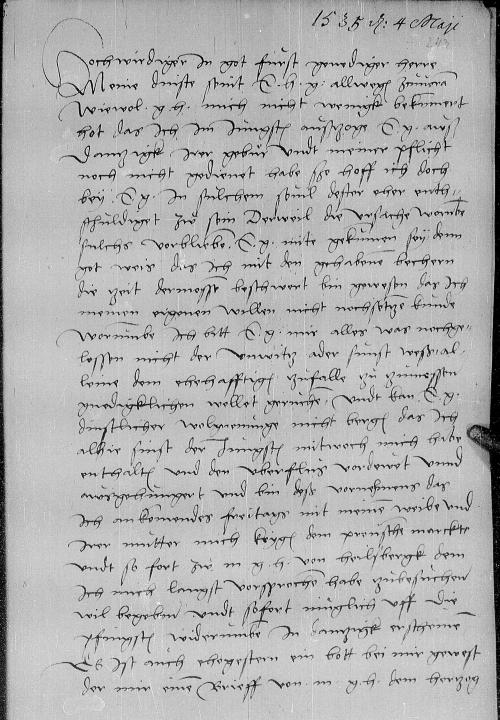 1535 d: 4 Maji
Hochwirdiger In got furst genediger herre
Meine dinste seint E. h. g. allwegen zuuorn
Wiewol g. h. mich nicht wenigk bekumert
hot das ich Im Jungsten auszoge E. g. aus
Danzigk Irer gebur vndt meiner pflicht
noch nicht gedienet habe so hoff ich doch
bey E. g. In sulchem souil dester eher enth-
schuldiget zu sein Derweil die vrsache worumbe
sulchs vorbliben E. g. mite gekumen sey denn
got weis das ich mit den gehabenen bechern
die zeit dermosse beschwert bin gewesen das ich
meinem eigenen willen nicht nochsetzen kunde
Worumbe ich bitt E. g. mir alles was nochge-
lossen nicht der vnwitz ader sunst wes al-
leine dem ehehafftigen zufalle zu zumessen
gnedigklichen wollet geruhe, vndt kan E. g.
dinstlicher wolmeinunge nicht bergen das ich
alhie sinst der Jungsten mitwoch mich habe
enthalten vnd den vberflus vorderet vnnd
ausgehungert vnd bin des vornehmens das
ich ankomendes freitags mit meinem weibe vnd
Irer mutter mich kegen dem preusche marckte
vndt so fort zu m g. h. von heilsbergk dem
ich mich langst vorsprochen habe zubesuchen
wil begeben vndt sofort muglich vff die
pfingsten widerumbe In danzigk erscheinen
Es ist auch ehegestern ein bott bei mir gewest
der mir einen brieff von m. g. h. dem herzog